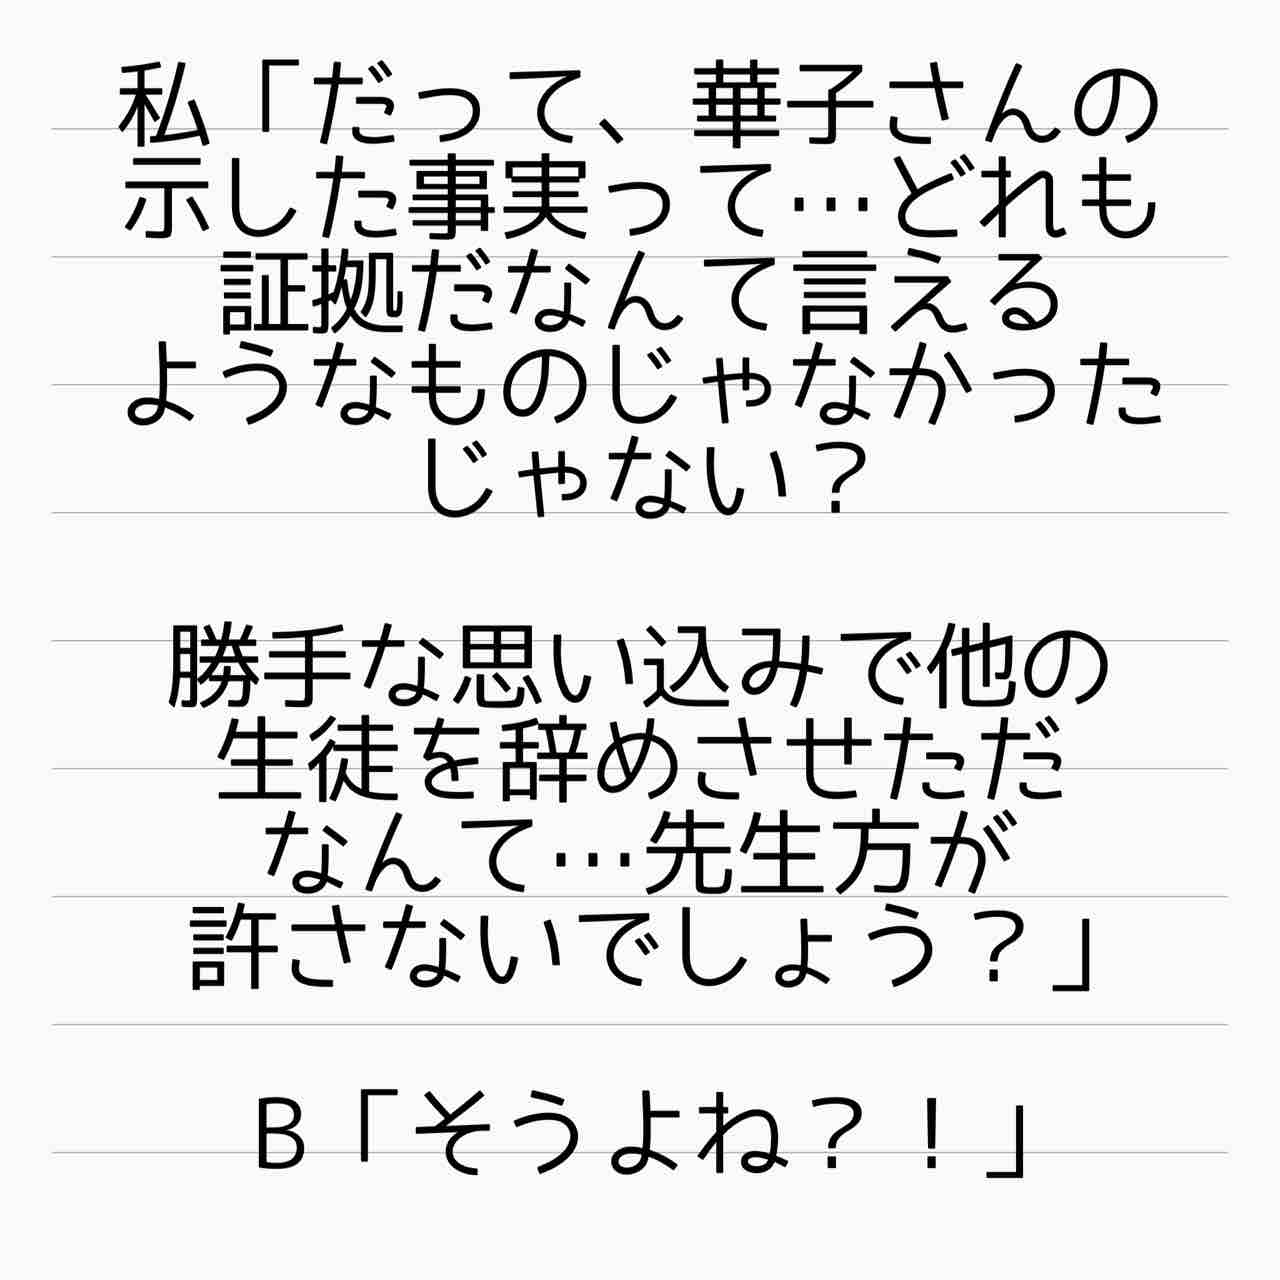 私「だって、華子さんの
示した事実って…どれも
証拠だなんて言える
ようなものじゃなかった
じゃない？
勝手な思い込みで他の
生徒を辞めさせただ
なんて…先生方が
許さないでしょう？」
B「そうよね？！」